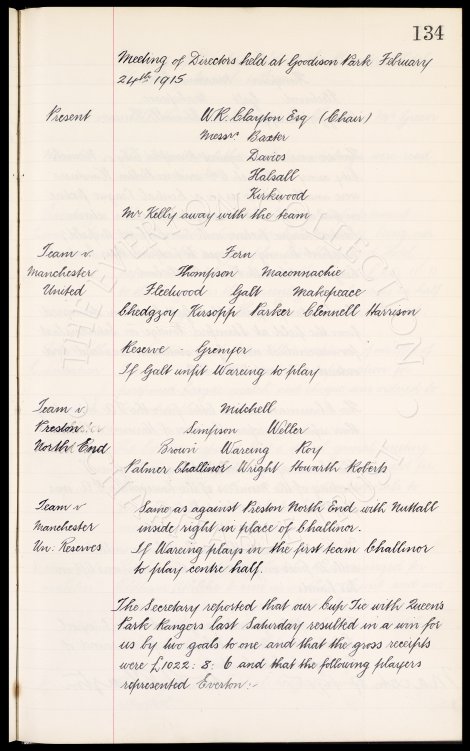 134
Meeting of Directors held at Goodison Park February
24th 1915
Present W.R. Clayton Esq (Chair)
Messrs Baxter
Davies
Halsall
Kirkwood
Mr Kelly away with the team
Team v. Fern
Manchester Thompson Maconnachie
United Fleetwood Galt Makepeace
Chedgzoy Kirsopp Parker Clennell Harrison
Reserve - Grenyer
If Galt unfit Wareing to play
Team v Mitchell
Preston Simpson Weller
North End Brown Wareing Roy
Palmer Challinor Wright Howarth Roberts
Team v Same as against Preston North End with Nuttall
Manchester inside right in place of Challinor.
Un. Reserves If Wareing plays in the first team Challinor
to play centre half.
The Secretary reported that our Cup Tie with Queens
Park Rangers last Saturday resulted in a win for
us by two goals to one and that the gross receipts
were £1022: 8: 6 and that the following players
represented Everton:-
THE EVERTON COLLECTION